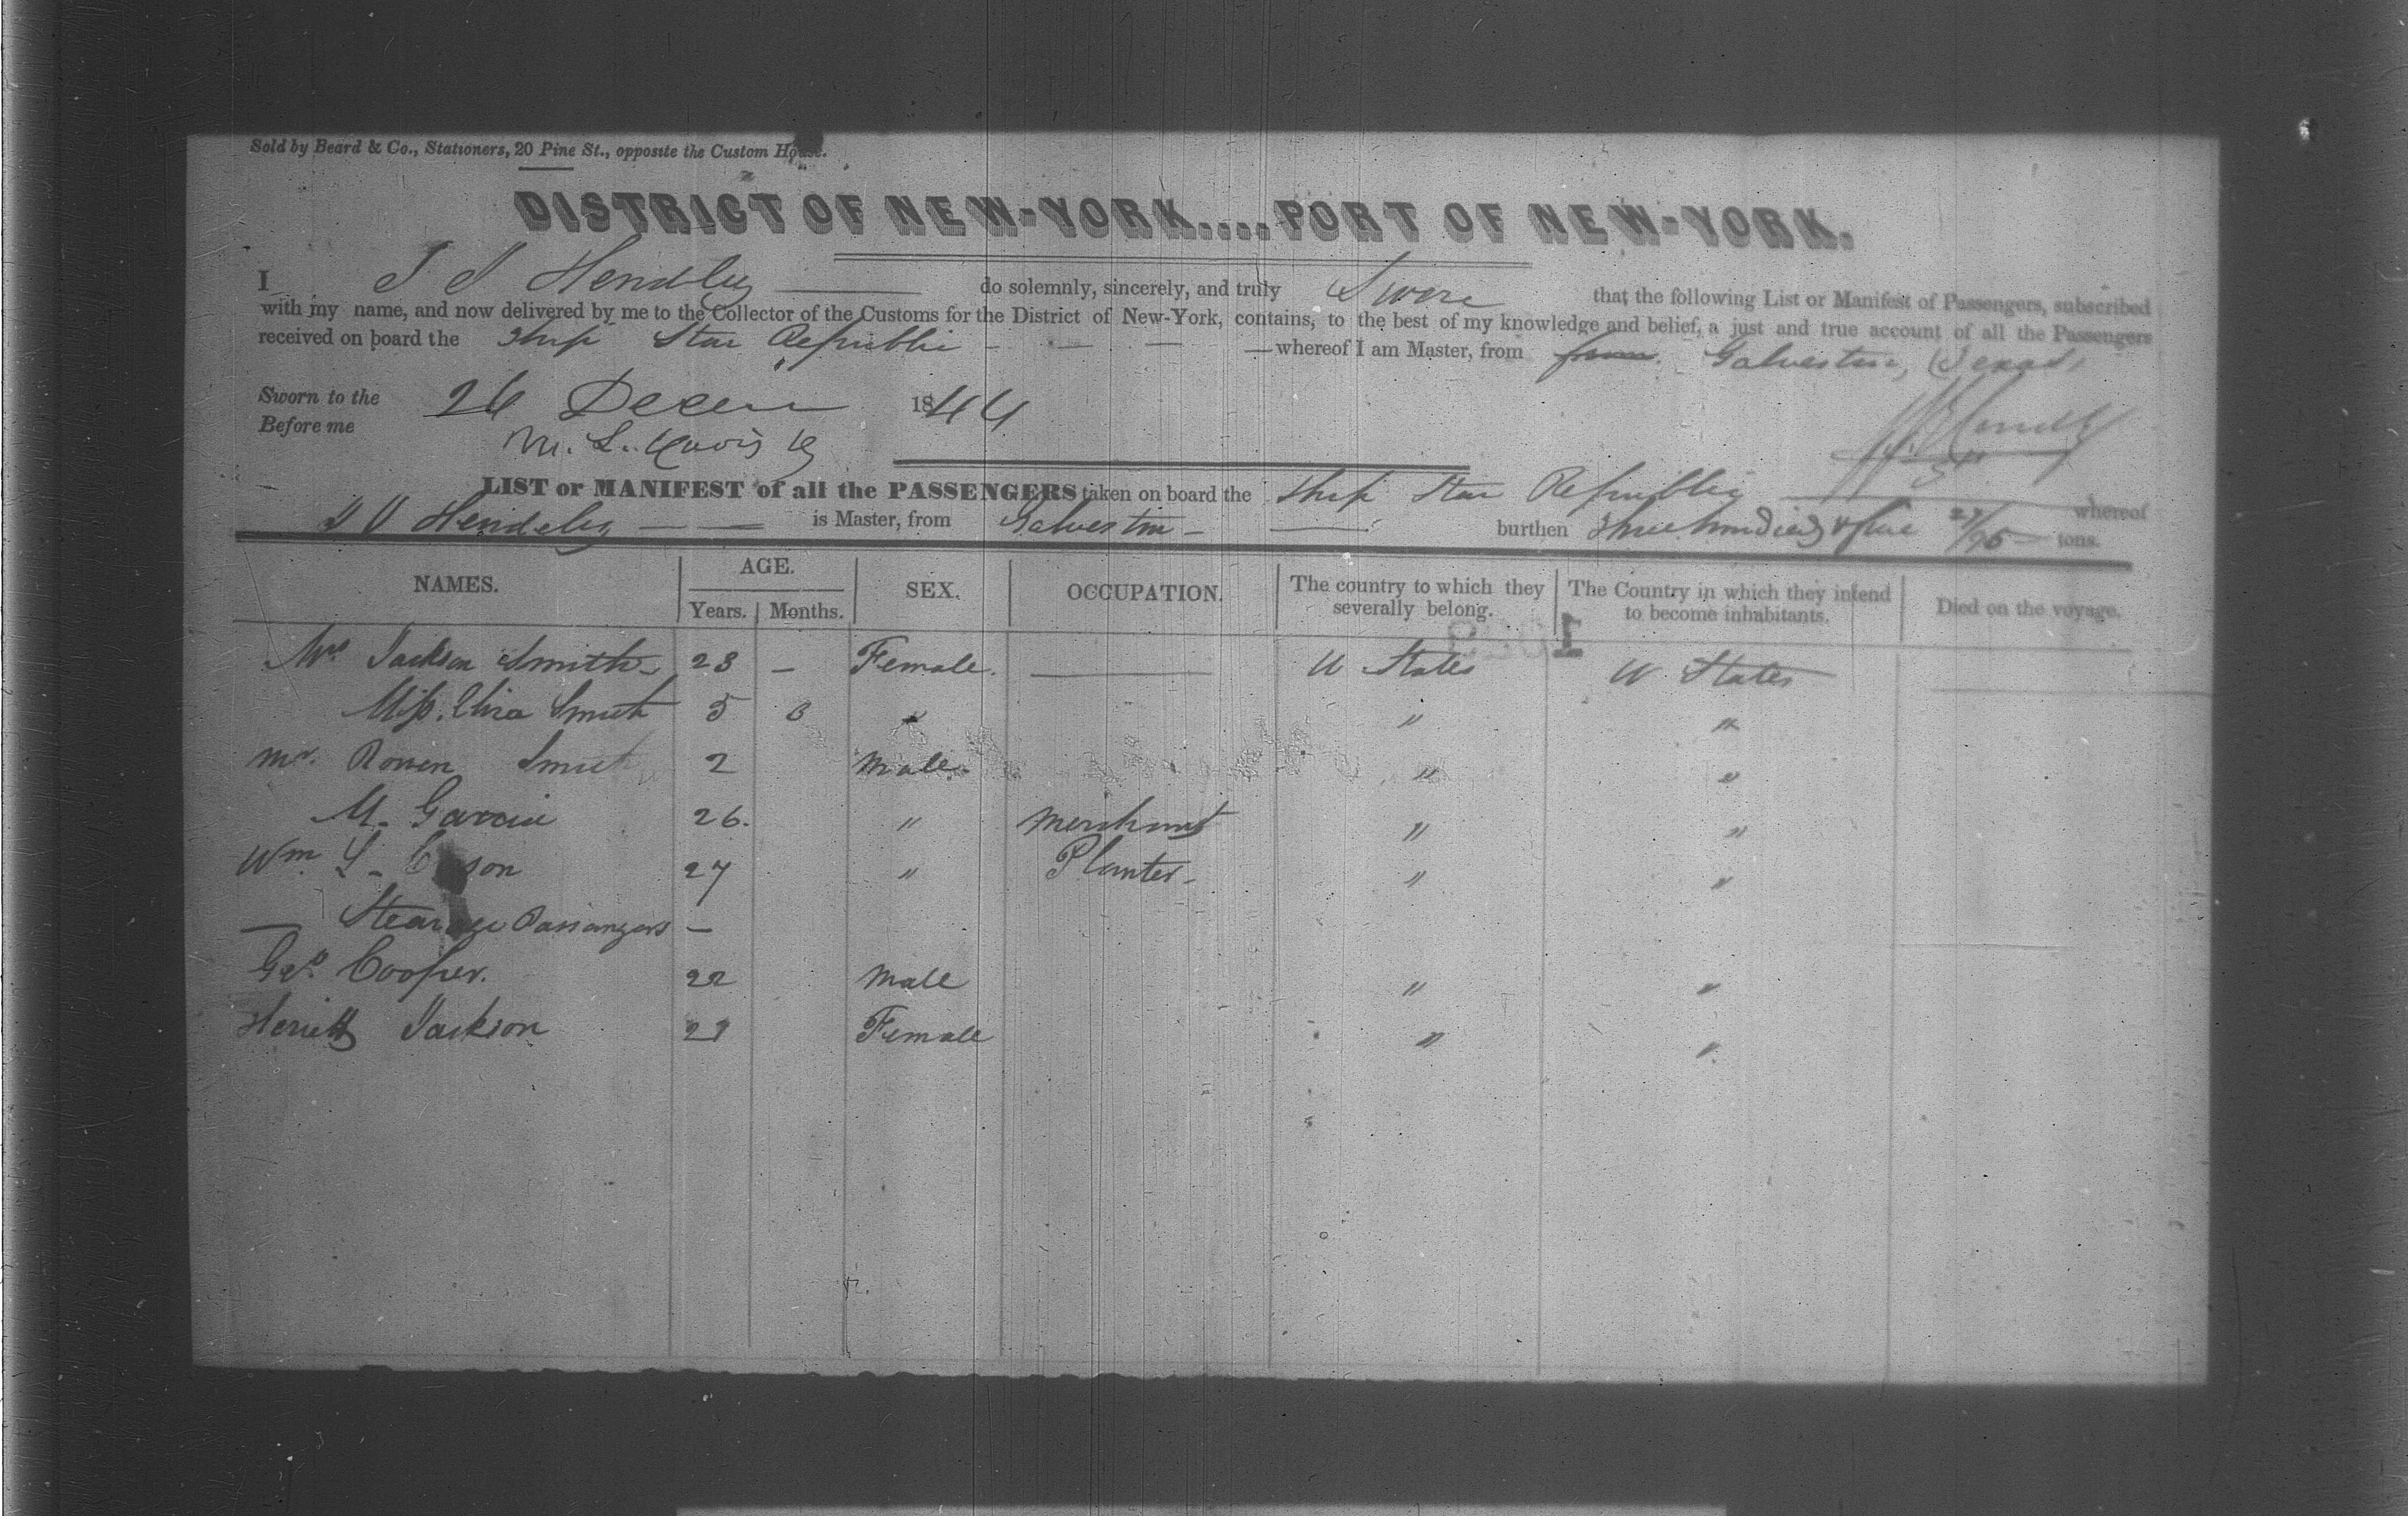 Sold by Beard & Co., Stationers, 20 Pine St., opposite the Custom House.
DISTRICT OF NEW-YORK....PORT OF NEW-YORK.
I J J Hendley do solemnly, sincerely, and truly Swere that the following List or Manifest of Passengers, subscribed
with my name, and now delivered by me to the Collector of the Customs for the District of New-York, contains, to the best of my knowledge and belief, a just and true account of all the Passengers
received on board the Ship Star Republic — whereof I am Master, from from Galveston, Texas
Sworn to the 26 Decem 1844
Before me
LIST or MANIFEST of all the PASSENGERS taken on board the Ship Star Republic whereof
J J Hendley is Master, from Galveston burthen three hundred & five 27/95 tons.
NAMES. AGE. SEX. OCCUPATION. The country to which they severally belong. The Country in which they intend to become inhabitants. Died on the voyage.
Years. Months.
Mrs Jackson Smith 23 — Female. U States U States
Miss. Eliza Smith 5 6 " " "
Mr. Rowen Smith 2 Male " "
M. Garcia 26. " Merchant " "
Wm. L. 27 " Planter " "
— Stearage Passangers —
Geo. Cooper. 22 Male " "
Heriett Jackson 21 Female " "